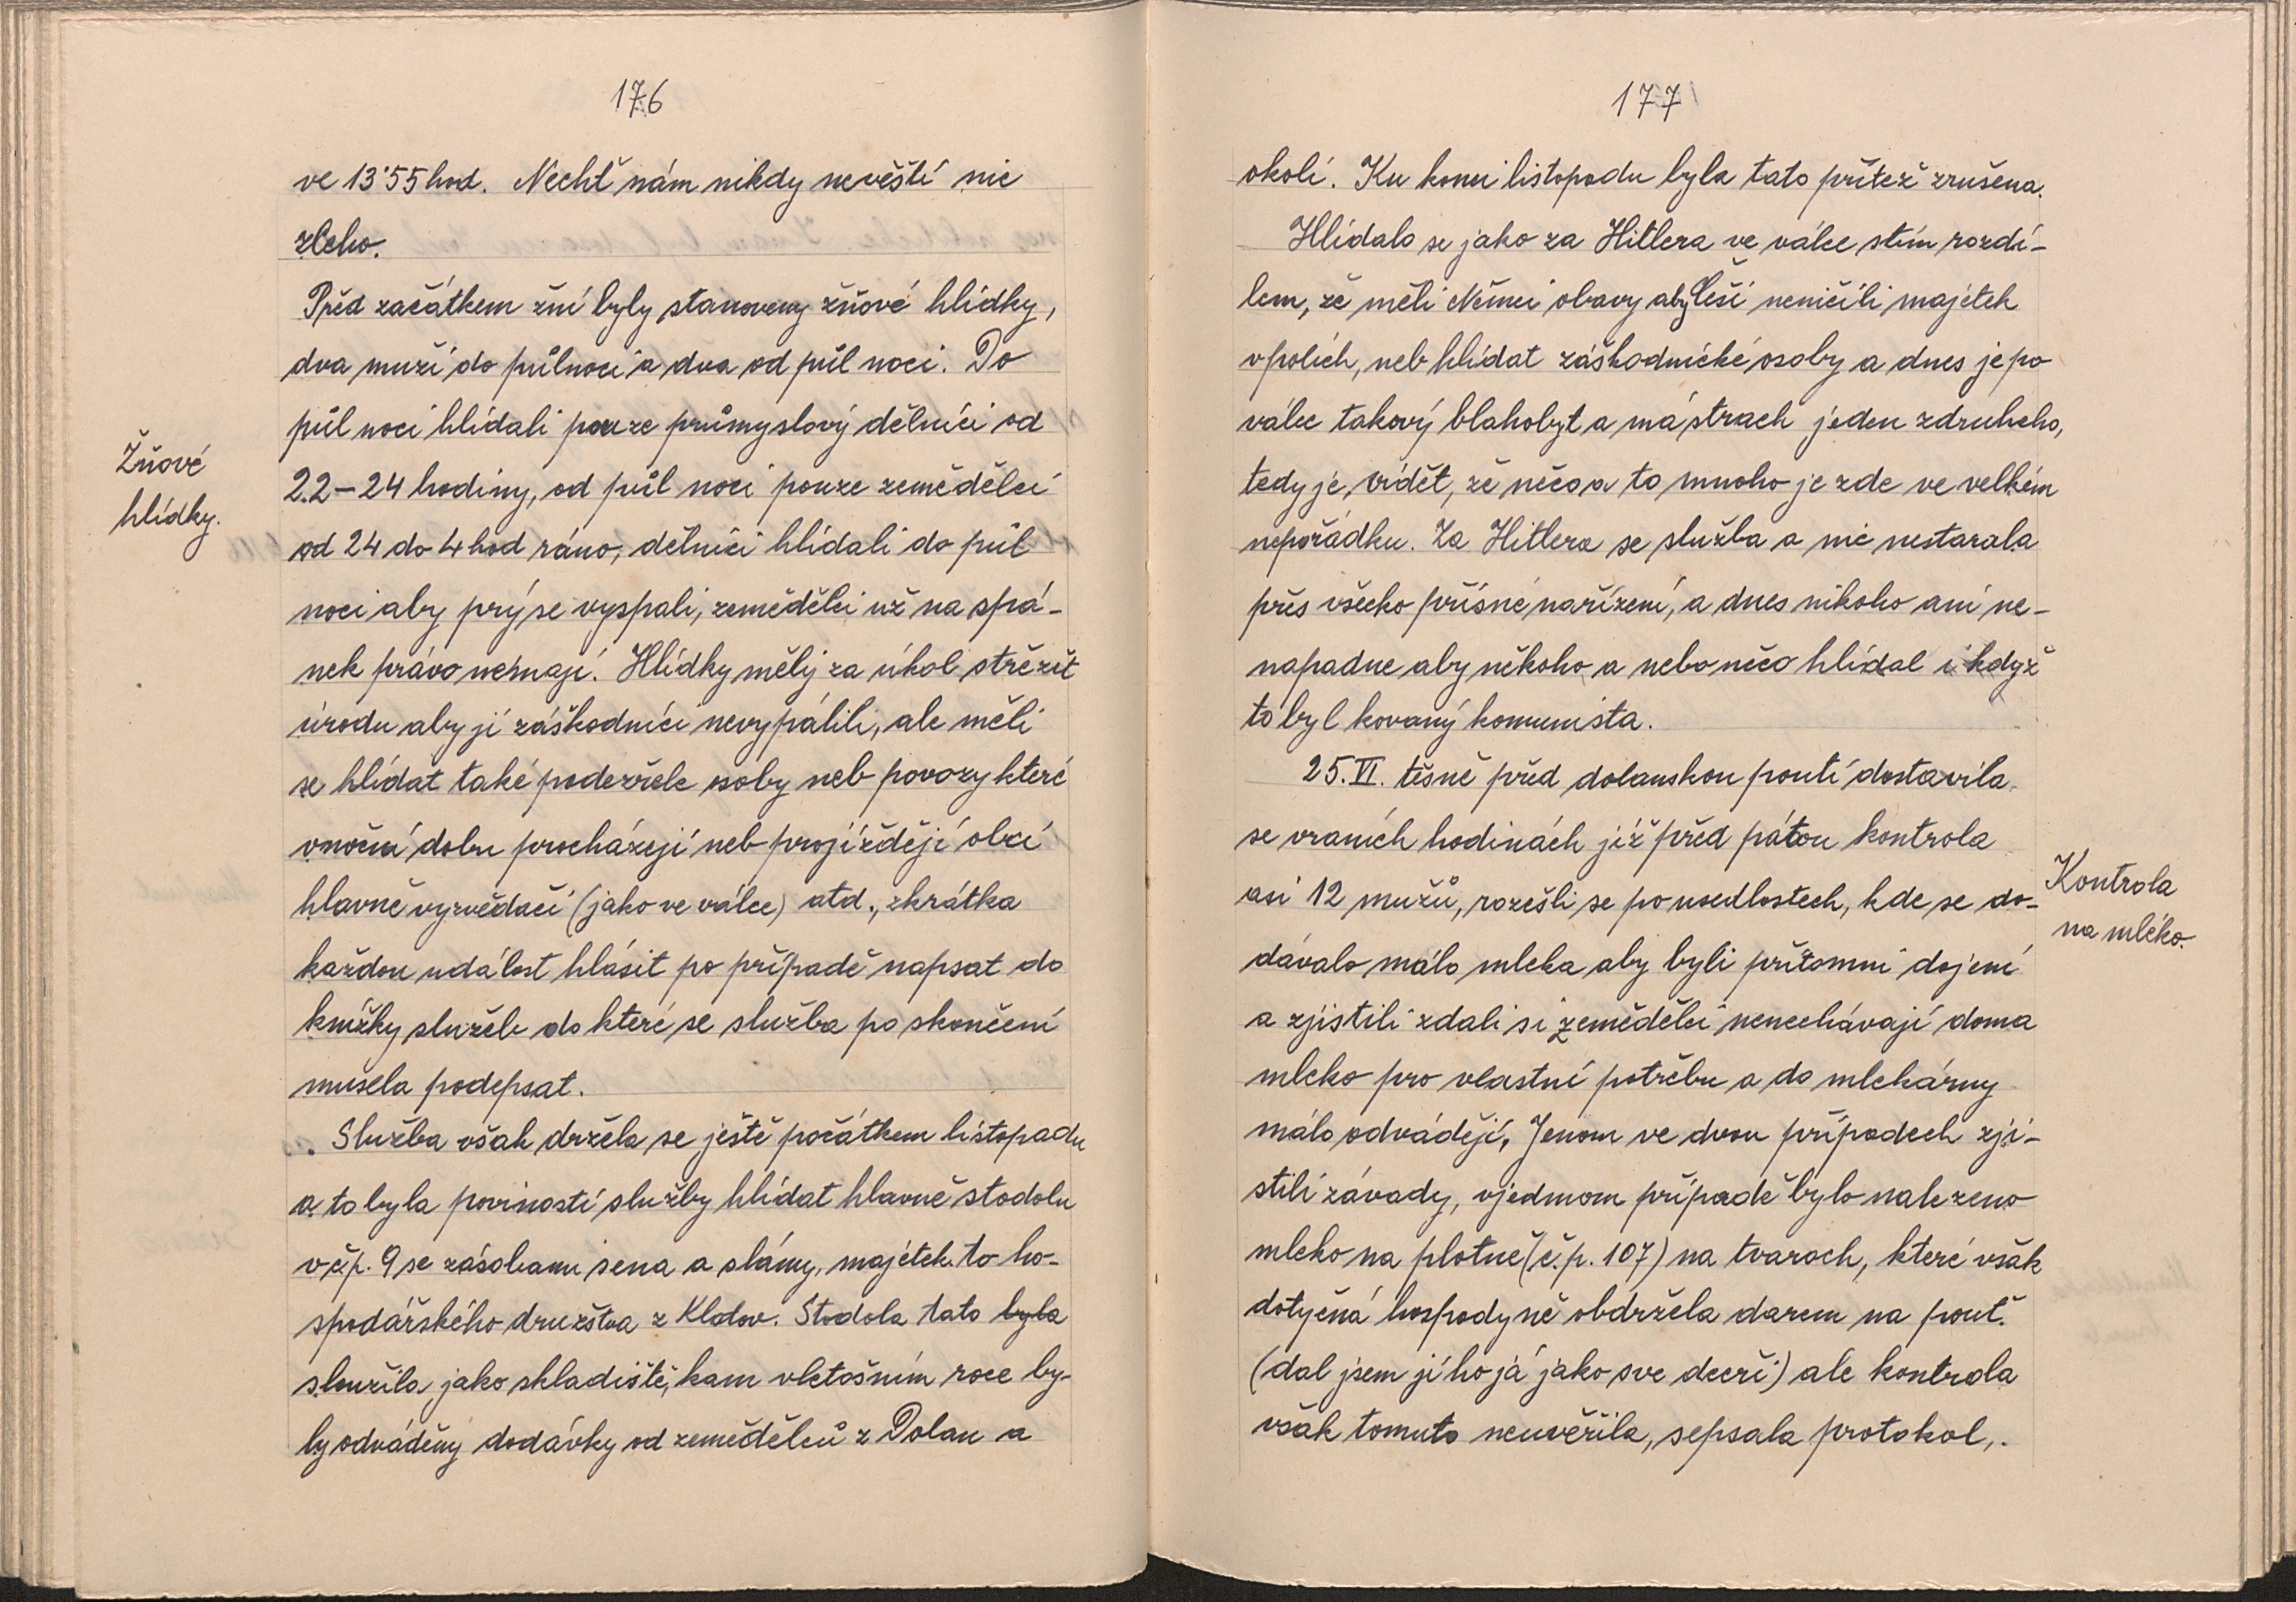 176
ve 13˙55 hod. Nechť nám nikdy nevěští nic
zlého.
Před začátkem žní byly stanoveny žňové hlídky,
dva muži do půlnoci a dva od půl noci. Do
půl noci hlídali pouze průmyslový dělníci od
Žňové
hlídky.
22–24 hodiny, od půl noci pouze zemědělci
od 24 do 4 hod ráno, dělníci hlídali do půl
noci aby prý se vyspali, zemědělci už na spá-
nek právo nemají. Hlídky měly za úkol střežit
úrodu aby jí záškodníci nevypálili, ale měli
se hlídat také podezřele osoby neb povozy které
vnoční dobu procházejí neb projíždějí obcí
hlavně vyzvědači (jako ve válce) atd., zkrátka
každou událost hlásit po případě napsat do
knížky služeb do které se služba po skončení
musela podepsat.
Služba však držela se ještě počátkem listopadu
a to byla poviností služby hlídat hlavně stodolu
v čp. 9 se zásobami sena a slámy, majetek to ho-
spodářského družstva z Klatov. Stodola tato byla
sloužila jako skladiště, kam vletošním roce by-
ly odváděny dodávky od zemědělců z Dolan a
177
okolí. Ku konci listopadu byla tato přítež zrušena.
Hlídalo se jako za Hitlera ve válce stím rozdí-
lem, že měli Němci obavy aby Češi neničili majetek
vpolích, neb hlídat záškodnické osoby a dnes je po
válce takový blahobyt a má strach jeden zdruheho,
tedy je vidět, že něco a to mnoho je zde ve velkém
nepořádku. Za Hitlera se služba a nic nestarala
přes všecko přísné nařízení, a dnes nikoho ani ne-
napadne aby někoho a nebo něco hlídal i když
to byl kovaný komunista.
25. VI. těsně před dolanskou poutí dostavila
se vraních hodinách již před pátou kontrola
asi 12 mužů, rozešli se po usedlostech, kde se do-
Kontrola
na mléko.
dávalo málo mleka aby byli přítomni dojení
a zjistili zdali si zemědělci nenechávají doma
mleko pro vlastní potřebu a do mlekárny
málo odvádějí. Jenom ve dvou případech zji-
stili závady, vjednom případě bylo nalezeno
mleko na plotně (č.p. 107) na tvaroh, které však
dotyčná hospodyně obdržela darem na pouť.
(dal jsem jí ho já jako sve dceři) ale kontrola
však tomuto neuvěřila, sepsala protokol,.